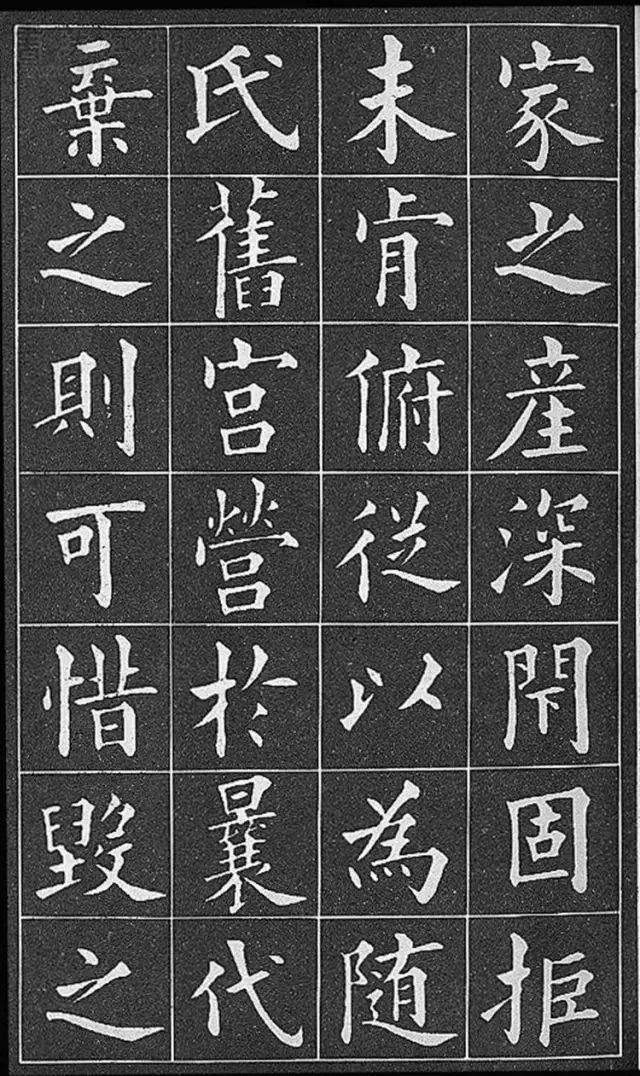 家之產深閇固拒
未肯俯從以為隨
氏舊宮營於曩代
棄之則可惜毀之